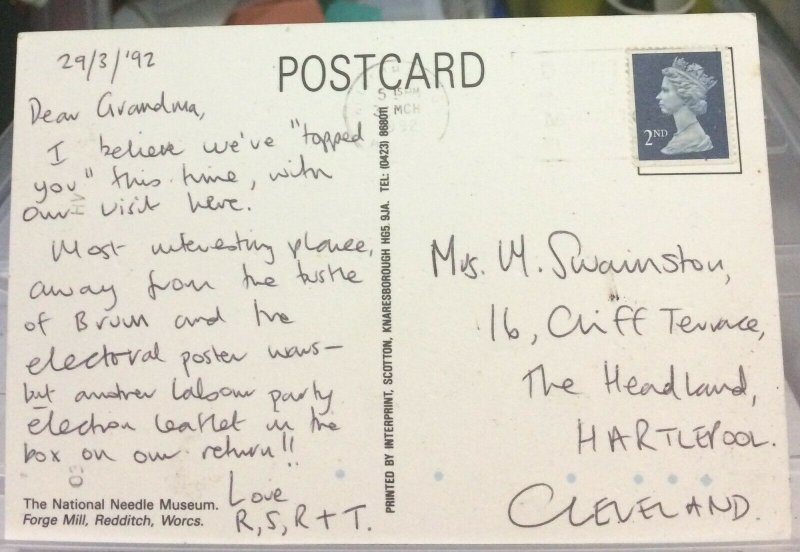 29/3/'92
POSTCARD
Dear Grandma,
I believe we've "topped
you" this time, with
our visit here.
Most interesting place,
away from the bustle
of Brum and the
electoral poster wars—
but another Labour party
election leaflet in the
box on our return!!
Love
R, S, R + T.
The National Needle Museum.
Forge Mill, Redditch, Worcs.
PRINTED BY INTERPRINT, SCOTTON, KNARESBOROUGH HG5 9JA. TEL: (0423) 868011
5 15 PM
MCH
2ND
Mrs. M. Swainston,
16, Cliff Terrace,
The Headland,
HARTLEPOOL.
CLEVELAND.